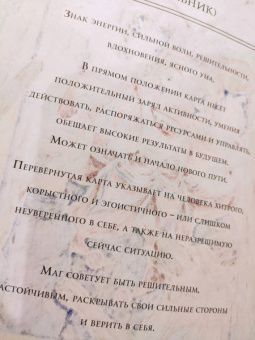 ЬНИК)
Знак энергии, сильной воли, решительности,
вдохновения, ясного ума.
В прямом положении карта несет
положительный заряд активности, умения
действовать, распоряжаться ресурсами и управлять,
обещает высокие результаты в будущем.
Может означать и начало нового пути.
Перевёрнутая карта указывает на человека хитрого,
корыстного и эгоистичного – или слишком
неуверенного в себе, а также на неразрешимую
сейчас ситуацию.
Маг советует быть решительным,
астойчивым, раскрывать свои сильные стороны
и верить в себя.